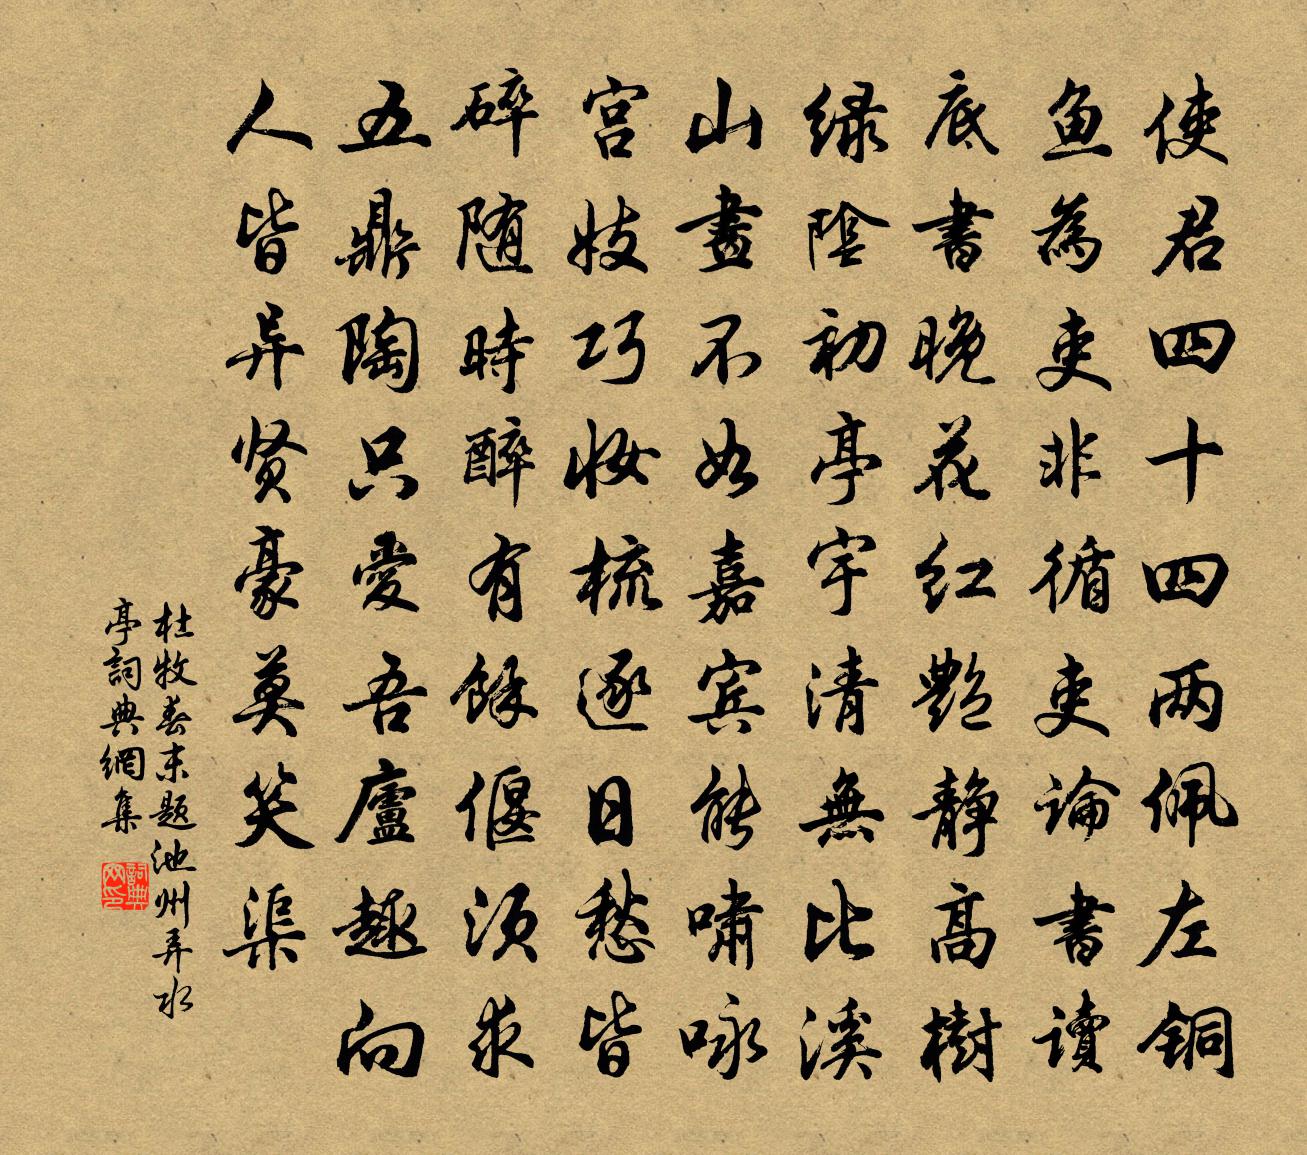 使君四十四两佩左铜
鱼為吏非循吏論書讀
底書晚花红艷静高樹
绿陰初亭宇清無比溪
山畫不如嘉宾能啸咏
宫妓巧妆梳逐日愁皆
碎随時醉有餘偃须求
五鼎陶只愛吾廬趣向
人皆异贤豪莫笑渠
杜牧春末题池州弄水
亭詞典網集
詞典网印